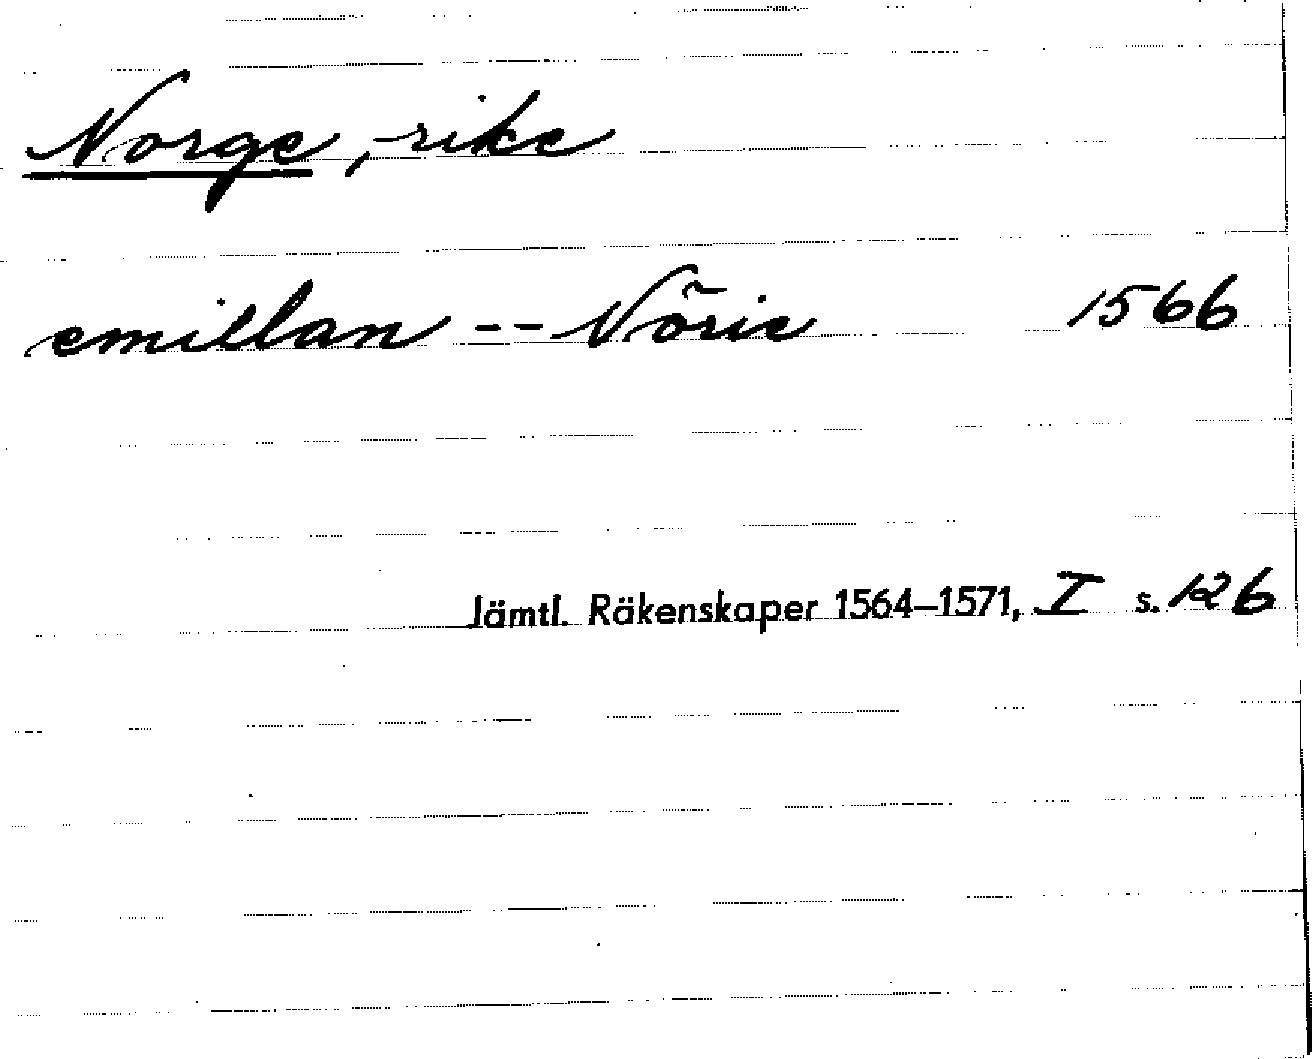 Norge, rike
emillan -- Nõrie 1566
Jämtl. Räkenskaper 1564–1571, I s. 126